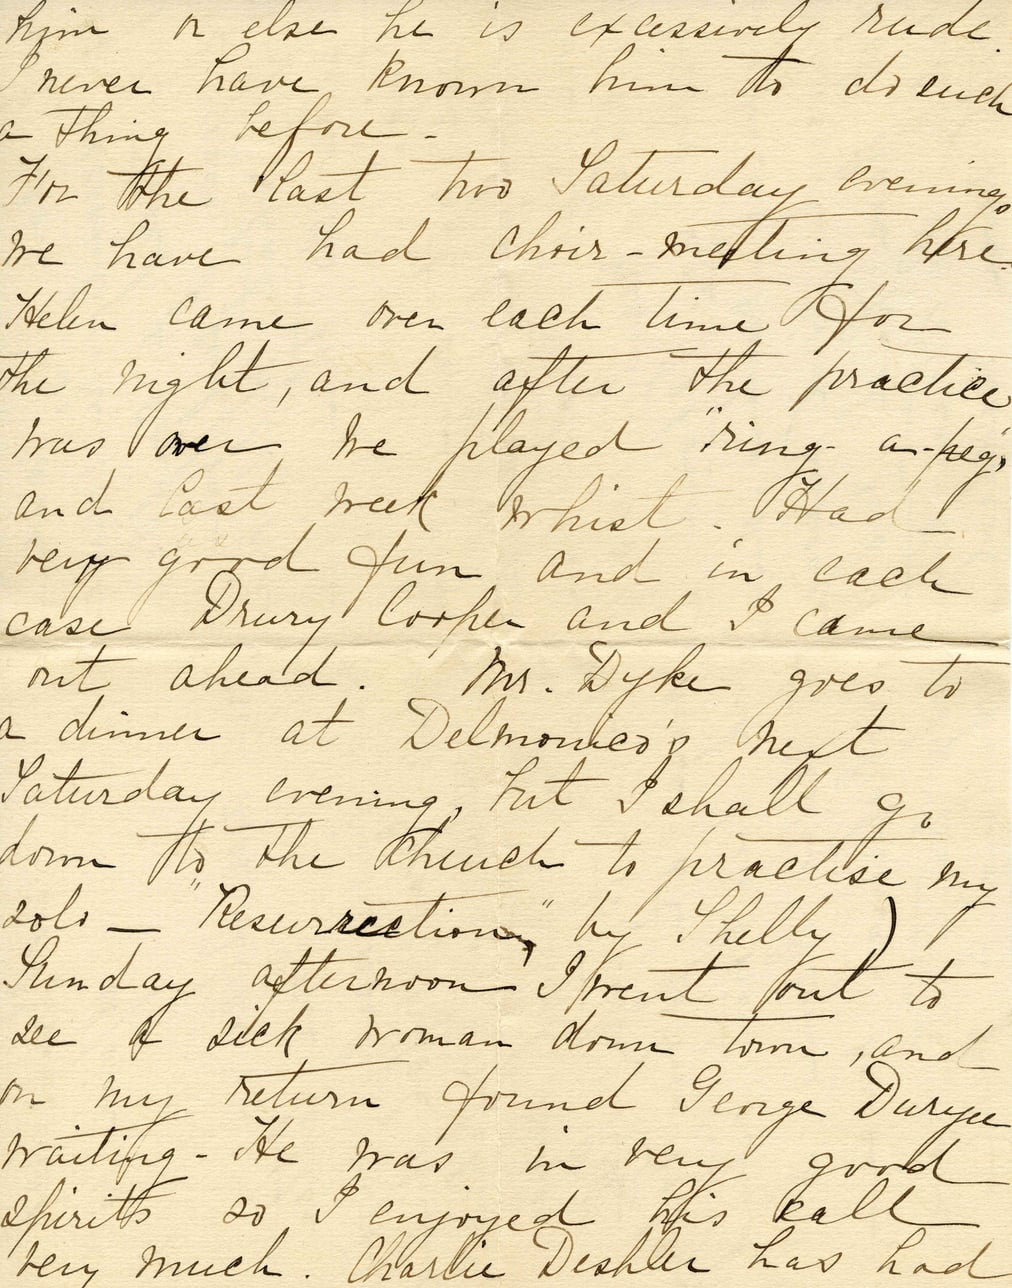 him or else he is excessively rude.
I never have known him to do such
a thing before -
For the last two Saturday evenings
we have had choir-meeting here.
Helen came over each time for
the night, and after the practice
was over we played "ring-a-peg",
and last week whist. Had
very good fun and in each
case Drury Cooper and I came
out ahead. Mr. Dyke goes to
a dinner at Delmonico's next
Saturday evening, but I shall go
down to the church to practise my
solo - "Resurrection," by Shelly)
Sunday afternoon I went out to
see a sick woman down town, and
on my return found George Duryee
waiting - He was in very good
spirits so I enjoyed his call
very much. Charlie Deshler has had